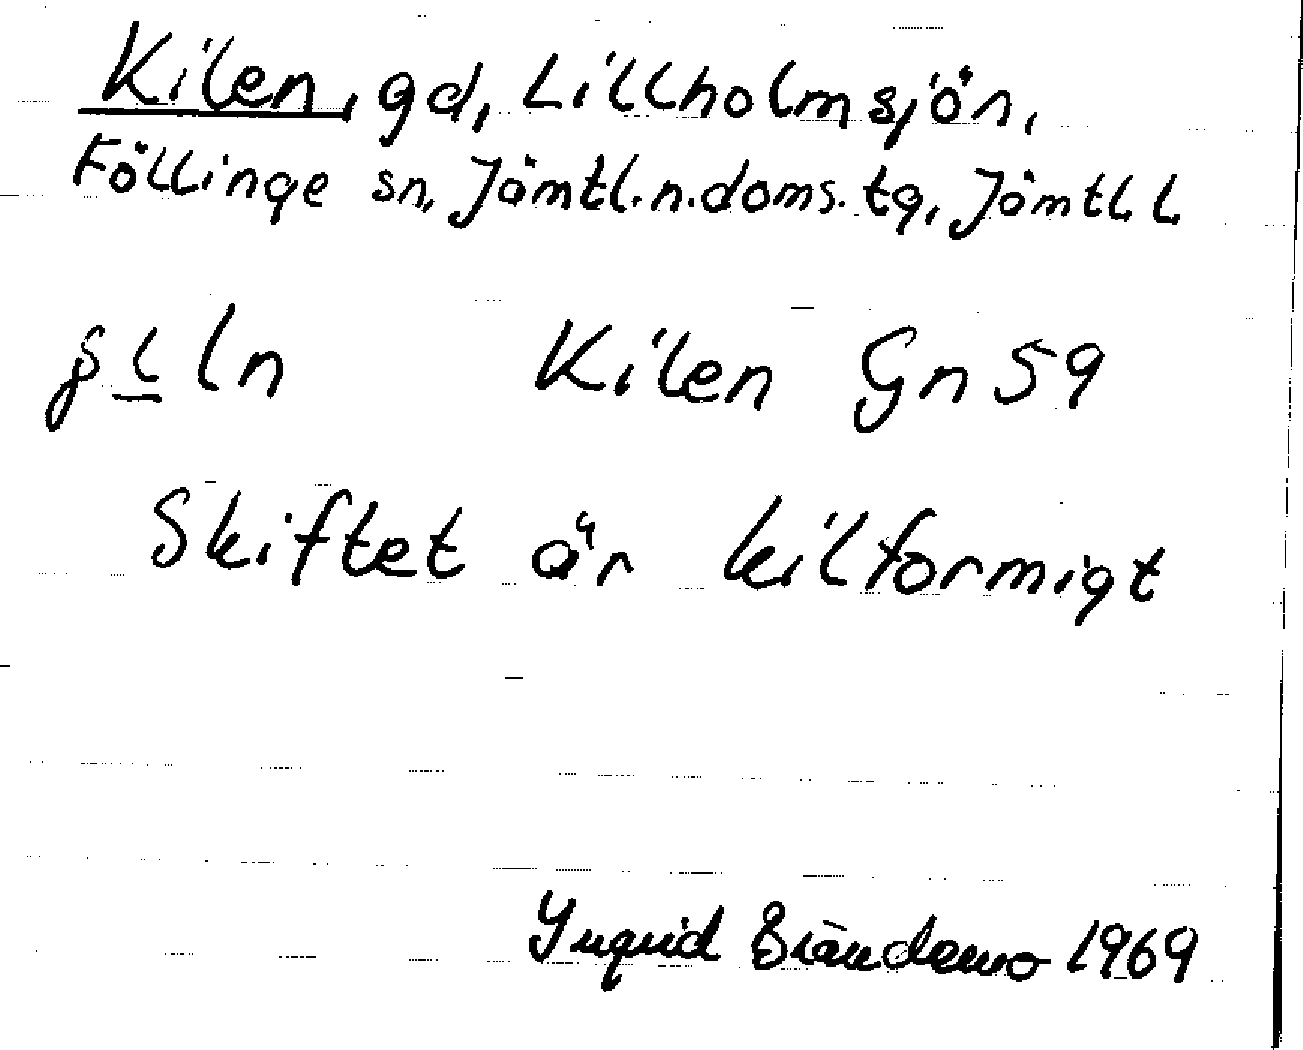 Kilen, gd, Lillholmsjön,
Föllinge sn, Jämtl. n. doms. tg, Jämtl. l
Kilen Gn 59
Skiftet är kilformigt
Ingrid Brändemo 1969